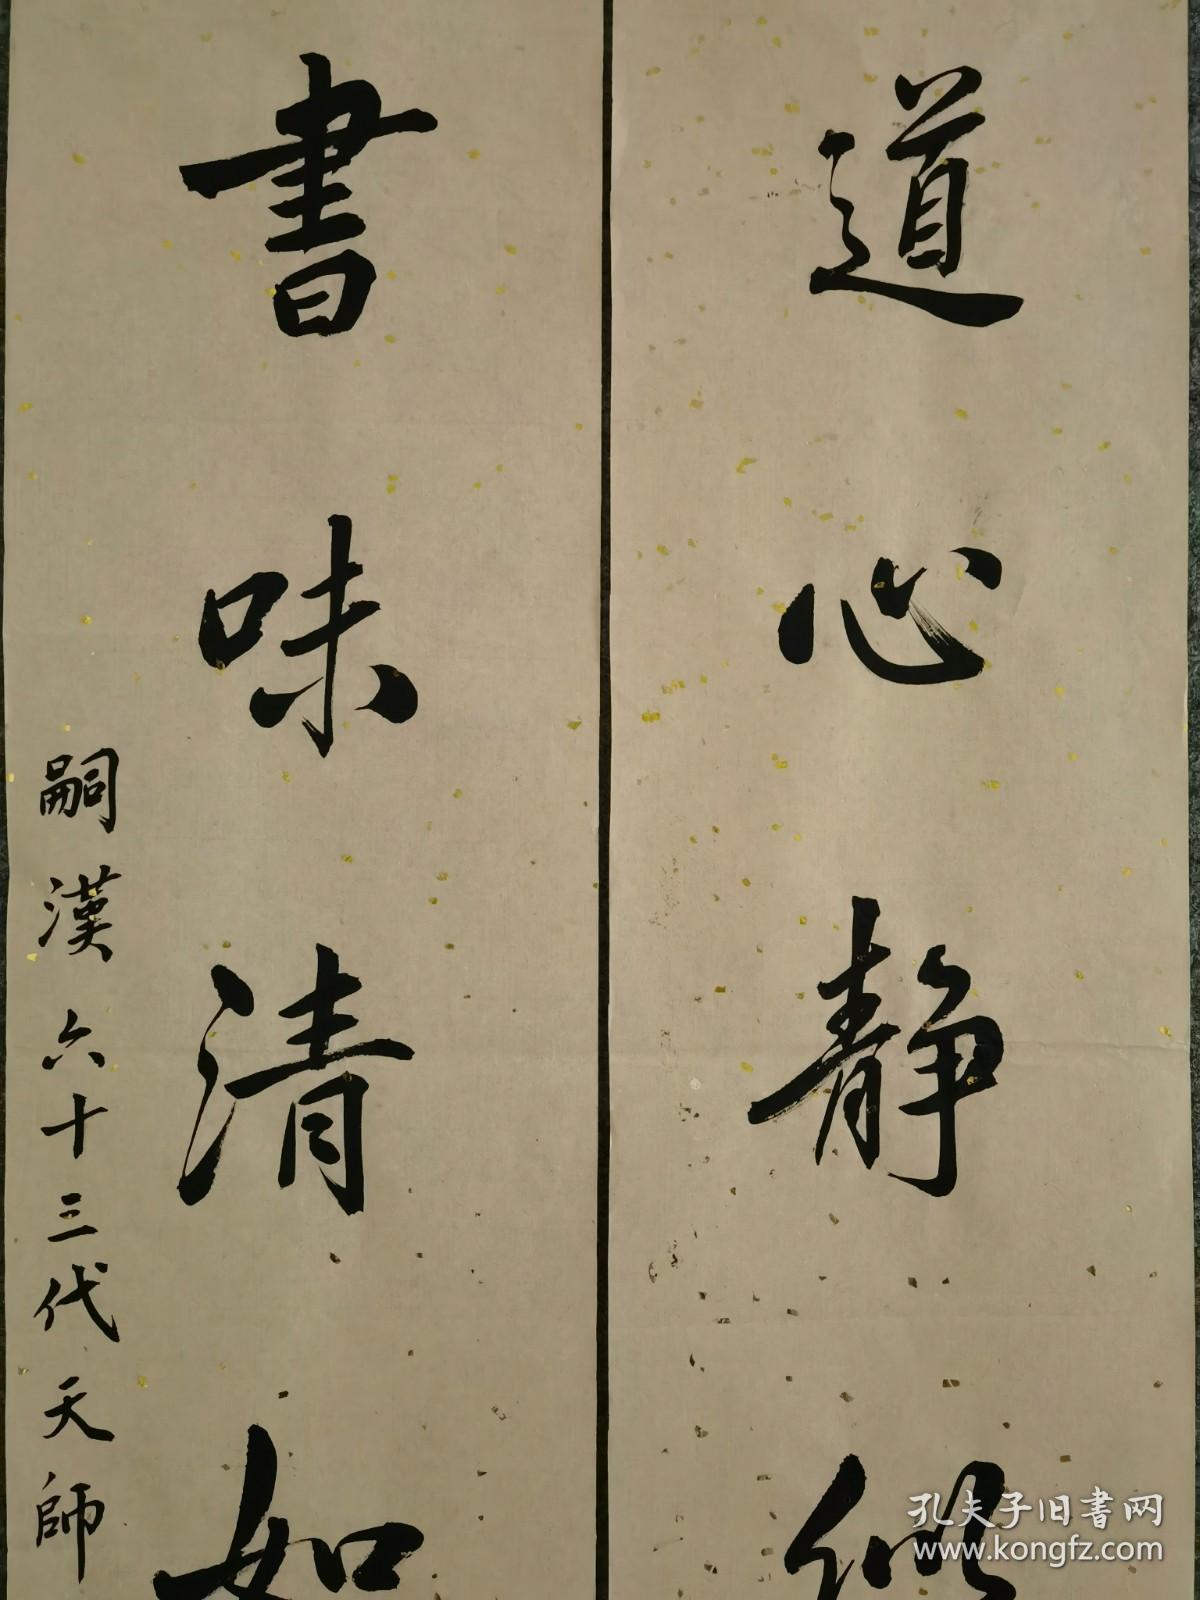 道心静似
書味清如
嗣漢六十三代天師
孔夫子旧书网
www.kongfz.com